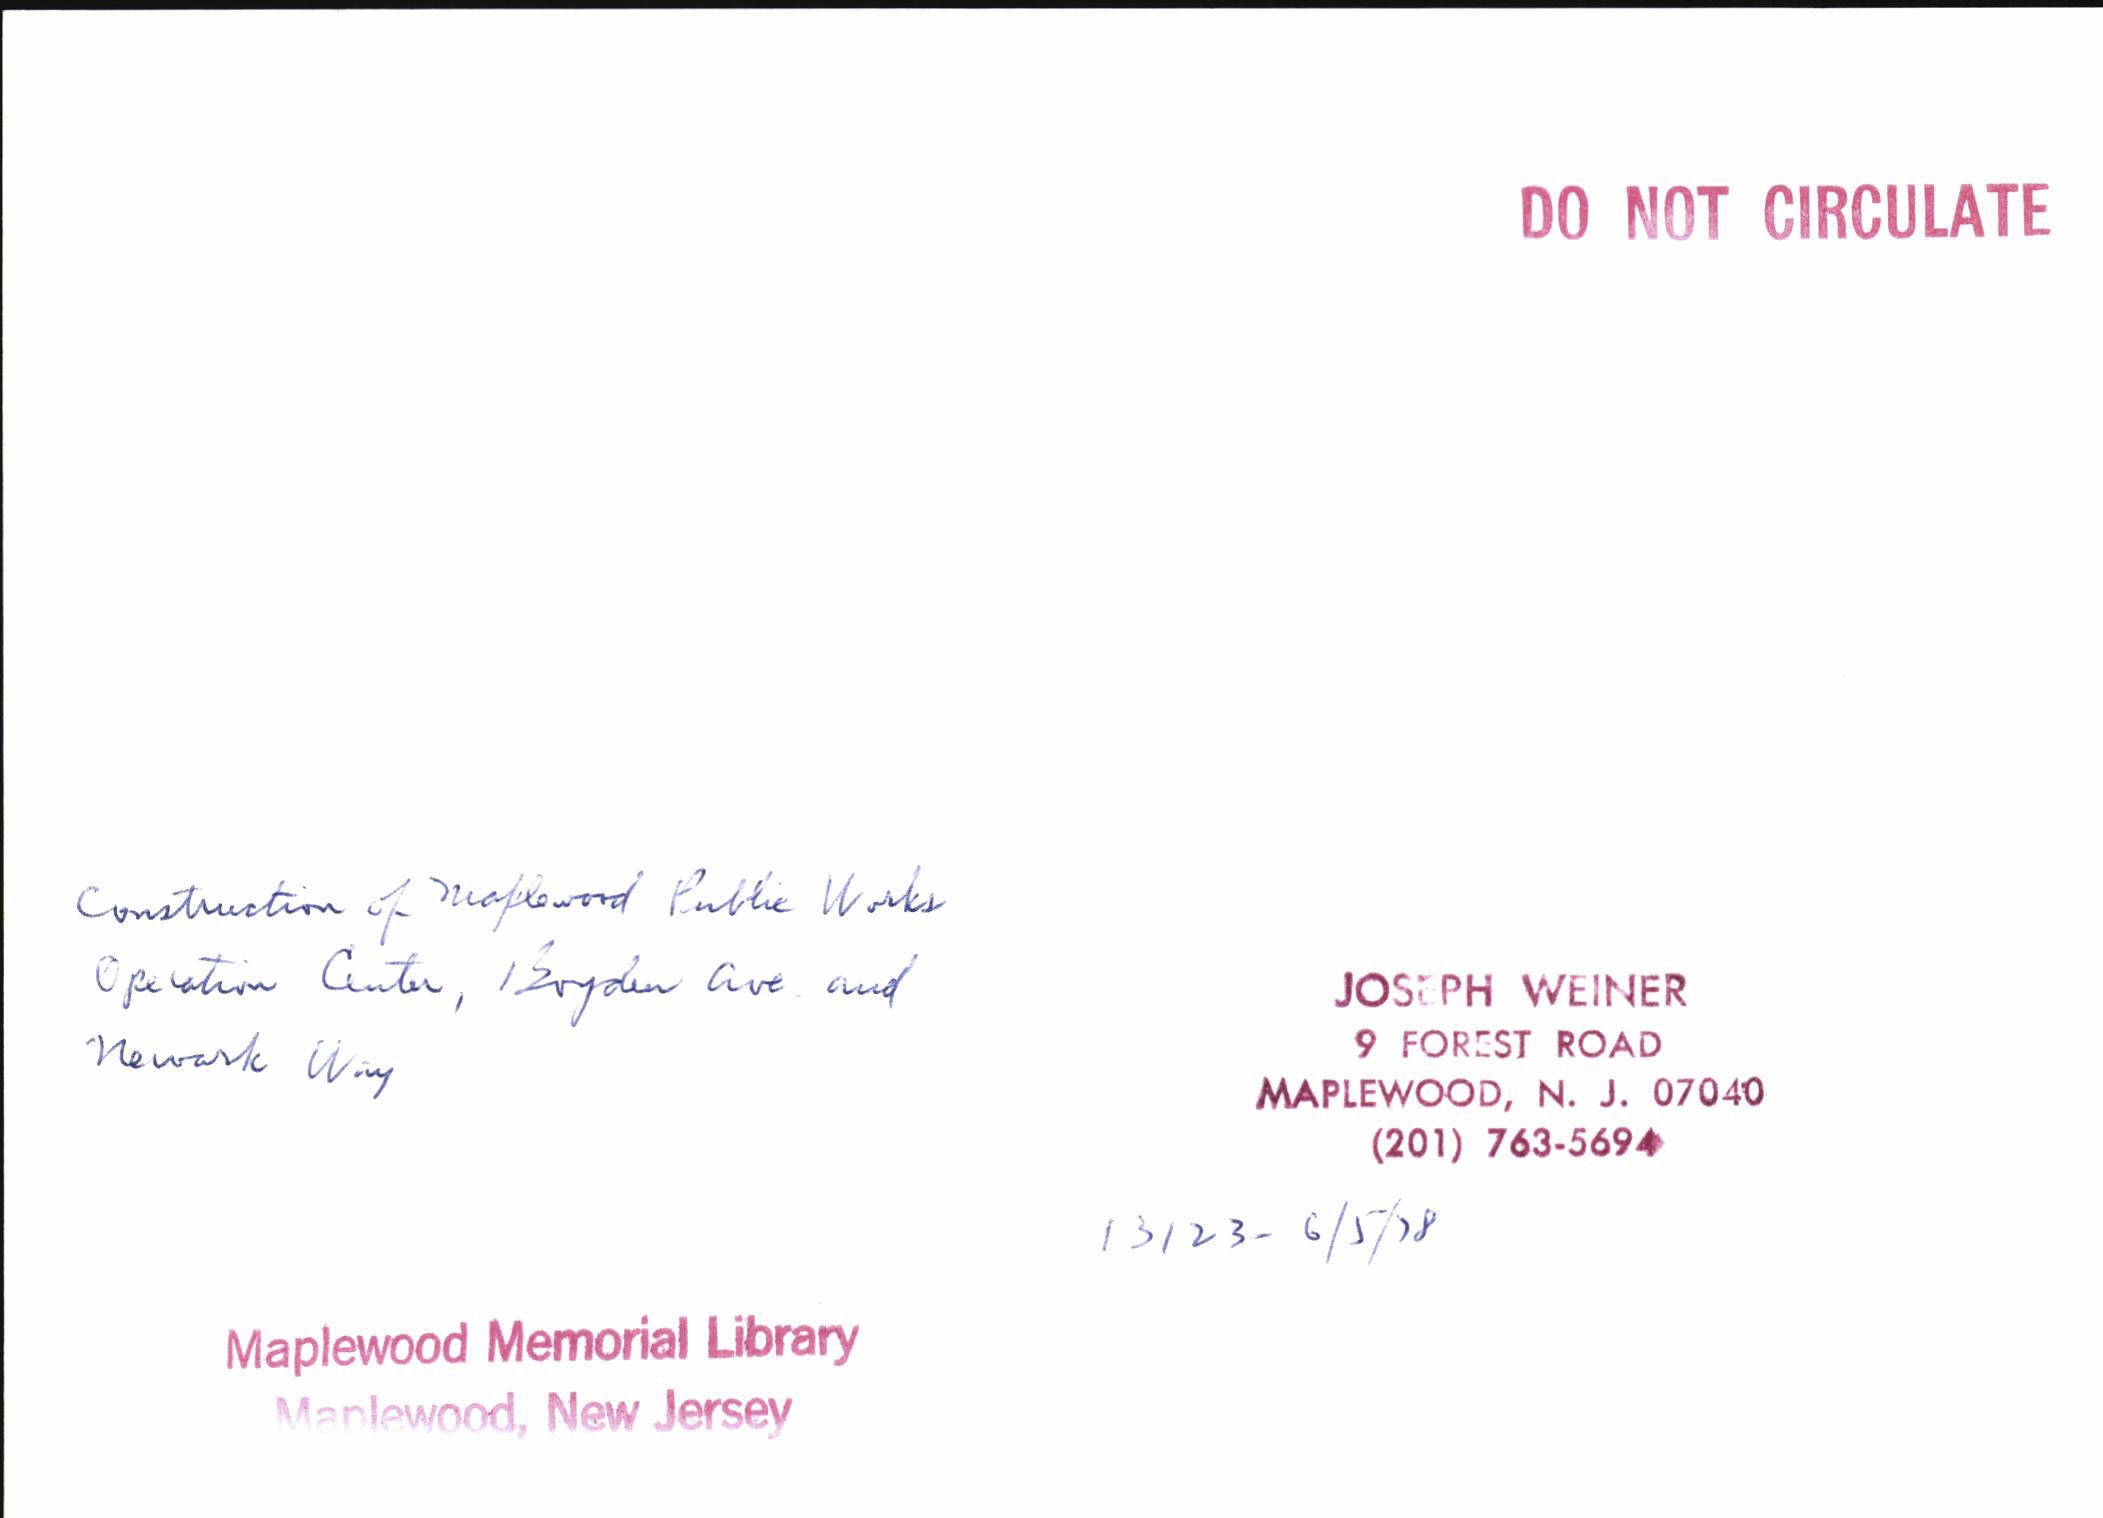 DO NOT CIRCULATE
Construction of Maplewood Public Works
Operation Center, Boyden Ave. and
Newark Way
JOSEPH WEINER
9 FOREST ROAD
MAPLEWOOD, N. J. 07040
(201) 763-5694
13123- 6/5/78
Maplewood Memorial Library
Maplewood, New Jersey